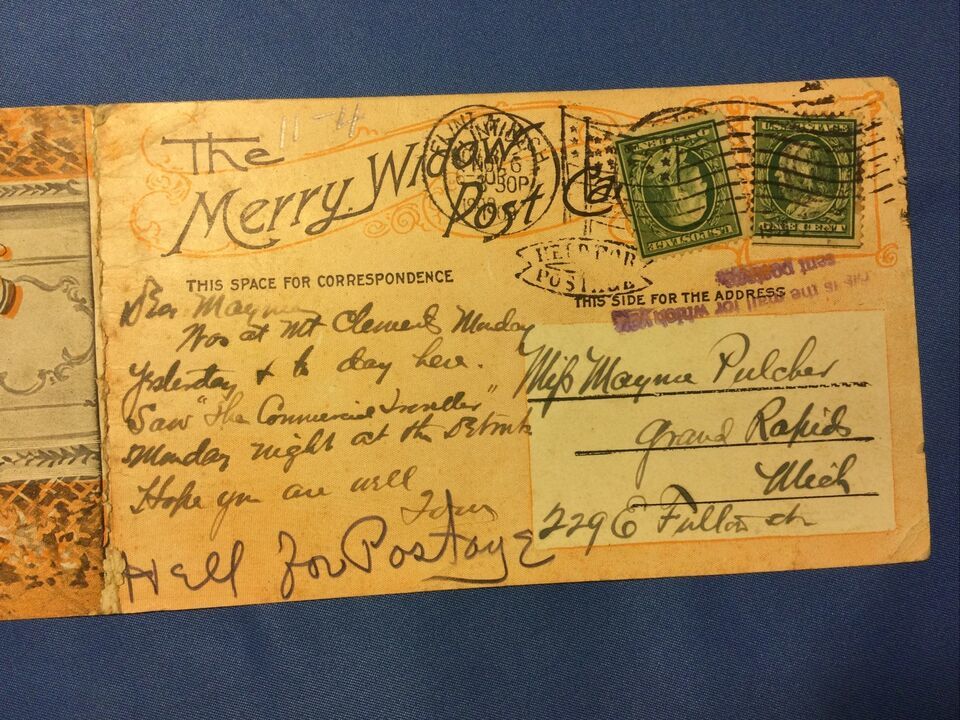 11-4
The
Merry Widow
Post Ca
FLINT MICH
NOV 6
30P
HELD FOR
POSTAGE
U.S. POSTAGE
U.S. POSTAGE
THIS SPACE FOR CORRESPONDENCE
THIS SIDE FOR THE ADDRESS
is the mail for which you
sent postage
Dear Mayme
Was at Mt Clemens Monday
Yesterday & to day here.
Saw "The Commercial Traveller"
Monday night at the Detroit
Hope you are well
Held for Postage
Miss Mayme Pulcher
Grand Rapids
Mich
229 E Fulton